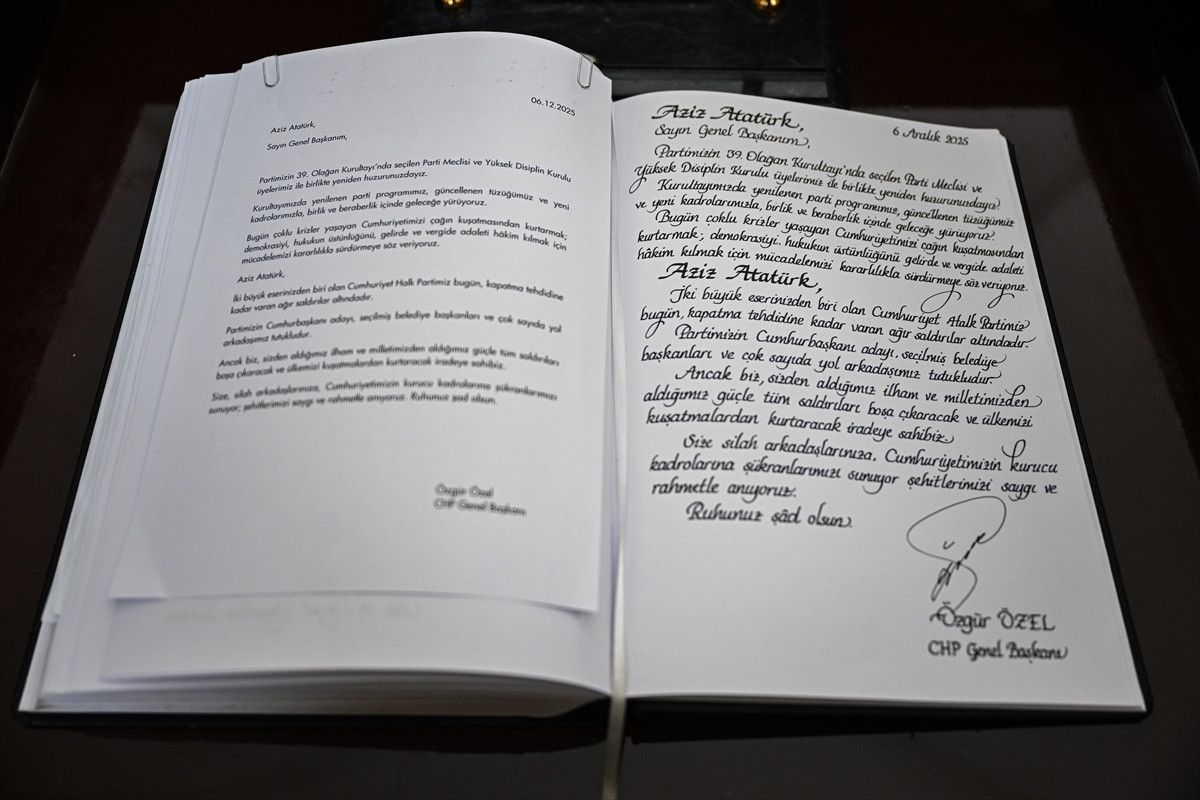 06.12.2025
Aziz Atatürk,
Sayın Genel Başkanım,
Partimizin 39. Olağan Kurultayı'nda seçilen Parti Meclisi ve Yüksek Disiplin Kurulu
üyelerimiz ile birlikte yeniden huzurunuzdayız.
Kurultayımızda yenilenen parti programımız, güncellenen tüzüğümüz ve yeni
kadrolarımızla, birlik ve beraberlik içinde geleceğe yürüyoruz.
Bugün çoklu krizler yaşayan Cumhuriyetimizi çağın kuşatmasından kurtarmak;
demokrasiyi, hukukun üstünlüğünü, gelirde ve vergide adaleti hâkim kılmak için
mücadelemizi kararlılıkla sürdürmeye söz veriyoruz.
Aziz Atatürk,
İki büyük eserinizden biri olan Cumhuriyet Halk Partimiz bugün, kapatma tehdidine
kadar varan ağır saldırılar altındadır.
Partimizin Cumhurbaşkanı adayı, seçilmiş belediye başkanları ve çok sayıda yol
arkadaşımız tutukludur.
Ancak biz, sizden aldığımız ilham ve milletimizden aldığımız güçle tüm saldırıları
boşa çıkaracak ve ülkemizi kuşatmalardan kurtaracak iradeye sahibiz.
Size, silah arkadaşlarınıza, Cumhuriyetimizin kurucu kadrolarına şükranlarımızı
sunuyor; şehitlerimizi saygı ve rahmetle anıyoruz. Ruhunuz şad olsun.
Özgür Özel
CHP Genel Başkanı
Aziz Atatürk,
6 Aralık 2025
Sayın Genel Başkanım,
Partimizin 39. Olağan Kurultayı'nda seçilen Parti Meclisi ve
Yüksek Disiplin Kurulu üyelerimiz ile birlikte yeniden huzurunuzdayız
Kurultayımızda yenilenen parti programımız, güncellenen tüzüğümüz
ve yeni kadrolarımızla, birlik ve beraberlik içinde geleceğe yürüyoruz.
Bugün çoklu krizler yaşayan Cumhuriyetimizi çağın kuşatmasından
kurtarmak; demokrasiyi, hukukun üstünlüğünü gelirde ve vergide adaleti
hâkim kılmak için mücadelemizi kararlılıkla sürdürmeye söz veriyoruz.
Aziz Atatürk,
İki büyük eserinizden biri olan Cumhuriyet Halk Partimiz
bugün, kapatma tehdidine kadar varan ağır saldırılar altındadır.
Partimizin Cumhurbaşkanı adayı, seçilmiş belediye
başkanları ve çok sayıda yol arkadaşımız tutukludur.
Ancak biz, sizden aldığımız ilham ve milletimizden
aldığımız güçle tüm saldırıları boşa çıkaracak ve ülkemizi
kuşatmalardan kurtaracak iradeye sahibiz.
Size silah arkadaşlarınıza, Cumhuriyetimizin kurucu
kadrolarına şükranlarımızı sunuyor şehitlerimizi saygı ve
rahmetle anıyoruz.
Ruhunuz şâd olsun.
Özgür ÖZEL
CHP Genel Başkanı